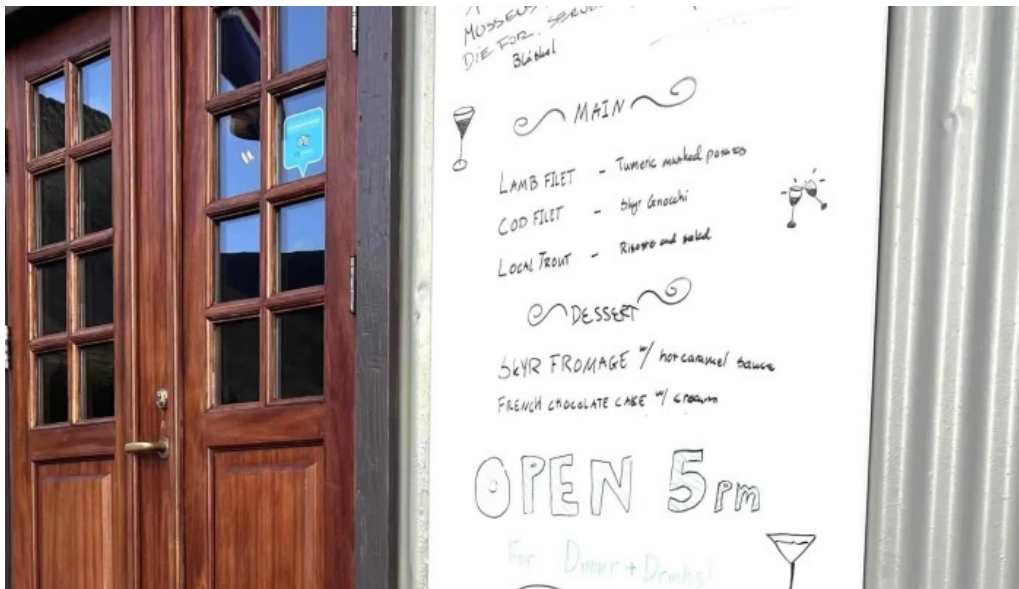 MUSSELS
DIE FOR. SERVED
Bláskel
MAIN
LAMB FILET - Tumeric mashed potatos
COD FILET - Skyr Gnocchi
LOCAL TROUT - Risotto and salad
DESSERT
SKYR FROMAGE w/ hot caramel sauce
FRENCH CHOCOLATE CAKE w/ cream
OPEN 5pm
For Dinner + Drinks!